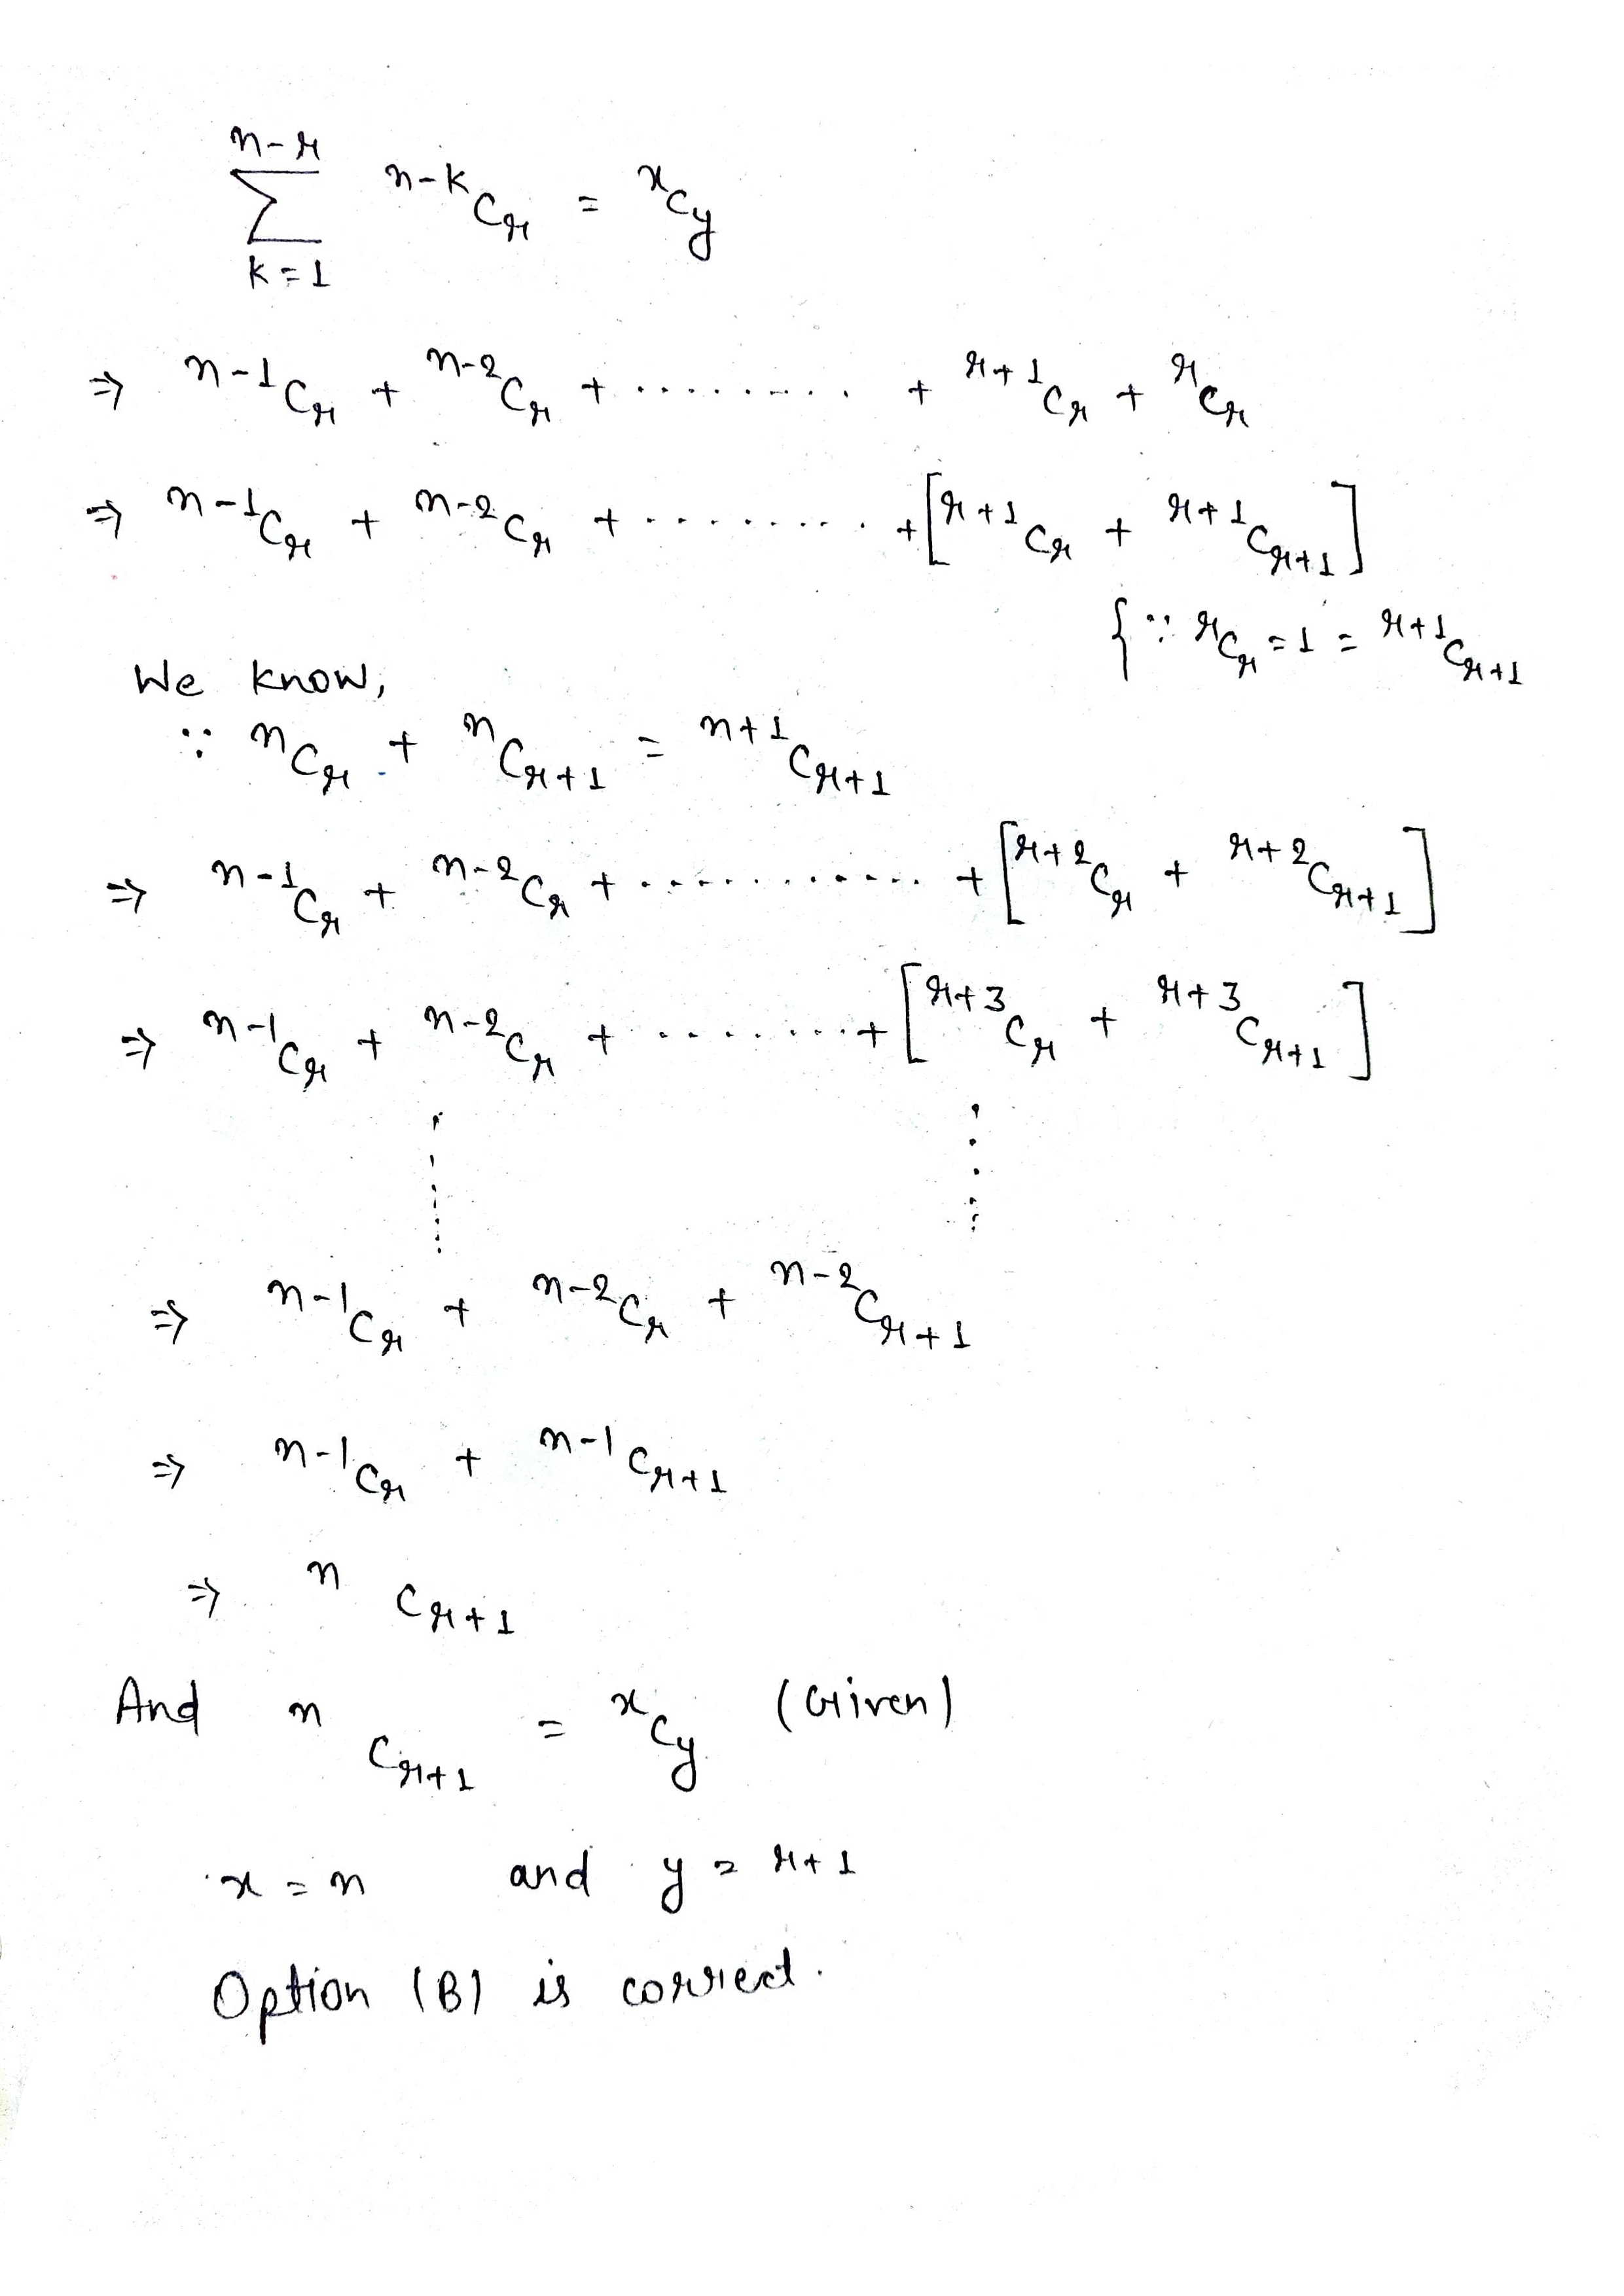 n-r
∑ n-kCr = xCy
k=1
⇒ n-1Cr + n-2Cr + .......... + r+1Cr + rCr
⇒ n-1Cr + n-2Cr + .......... + [r+1Cr + r+1Cr+1]
{∵ rCr = 1 = r+1Cr+1
We know,
∵ nCr + nCr+1 = n+1Cr+1
⇒ n-1Cr + n-2Cr + ............ + [r+2Cr + r+2Cr+1]
⇒ n-1Cr + n-2Cr + ......... + [r+3Cr + r+3Cr+1]
⇒ n-1Cr + n-2Cr + n-2Cr+1
⇒ n-1Cr + n-1Cr+1
⇒ nCr+1
And nCr+1 = xCy (Given)
x = n and y = r+1
Option (B) is correct.